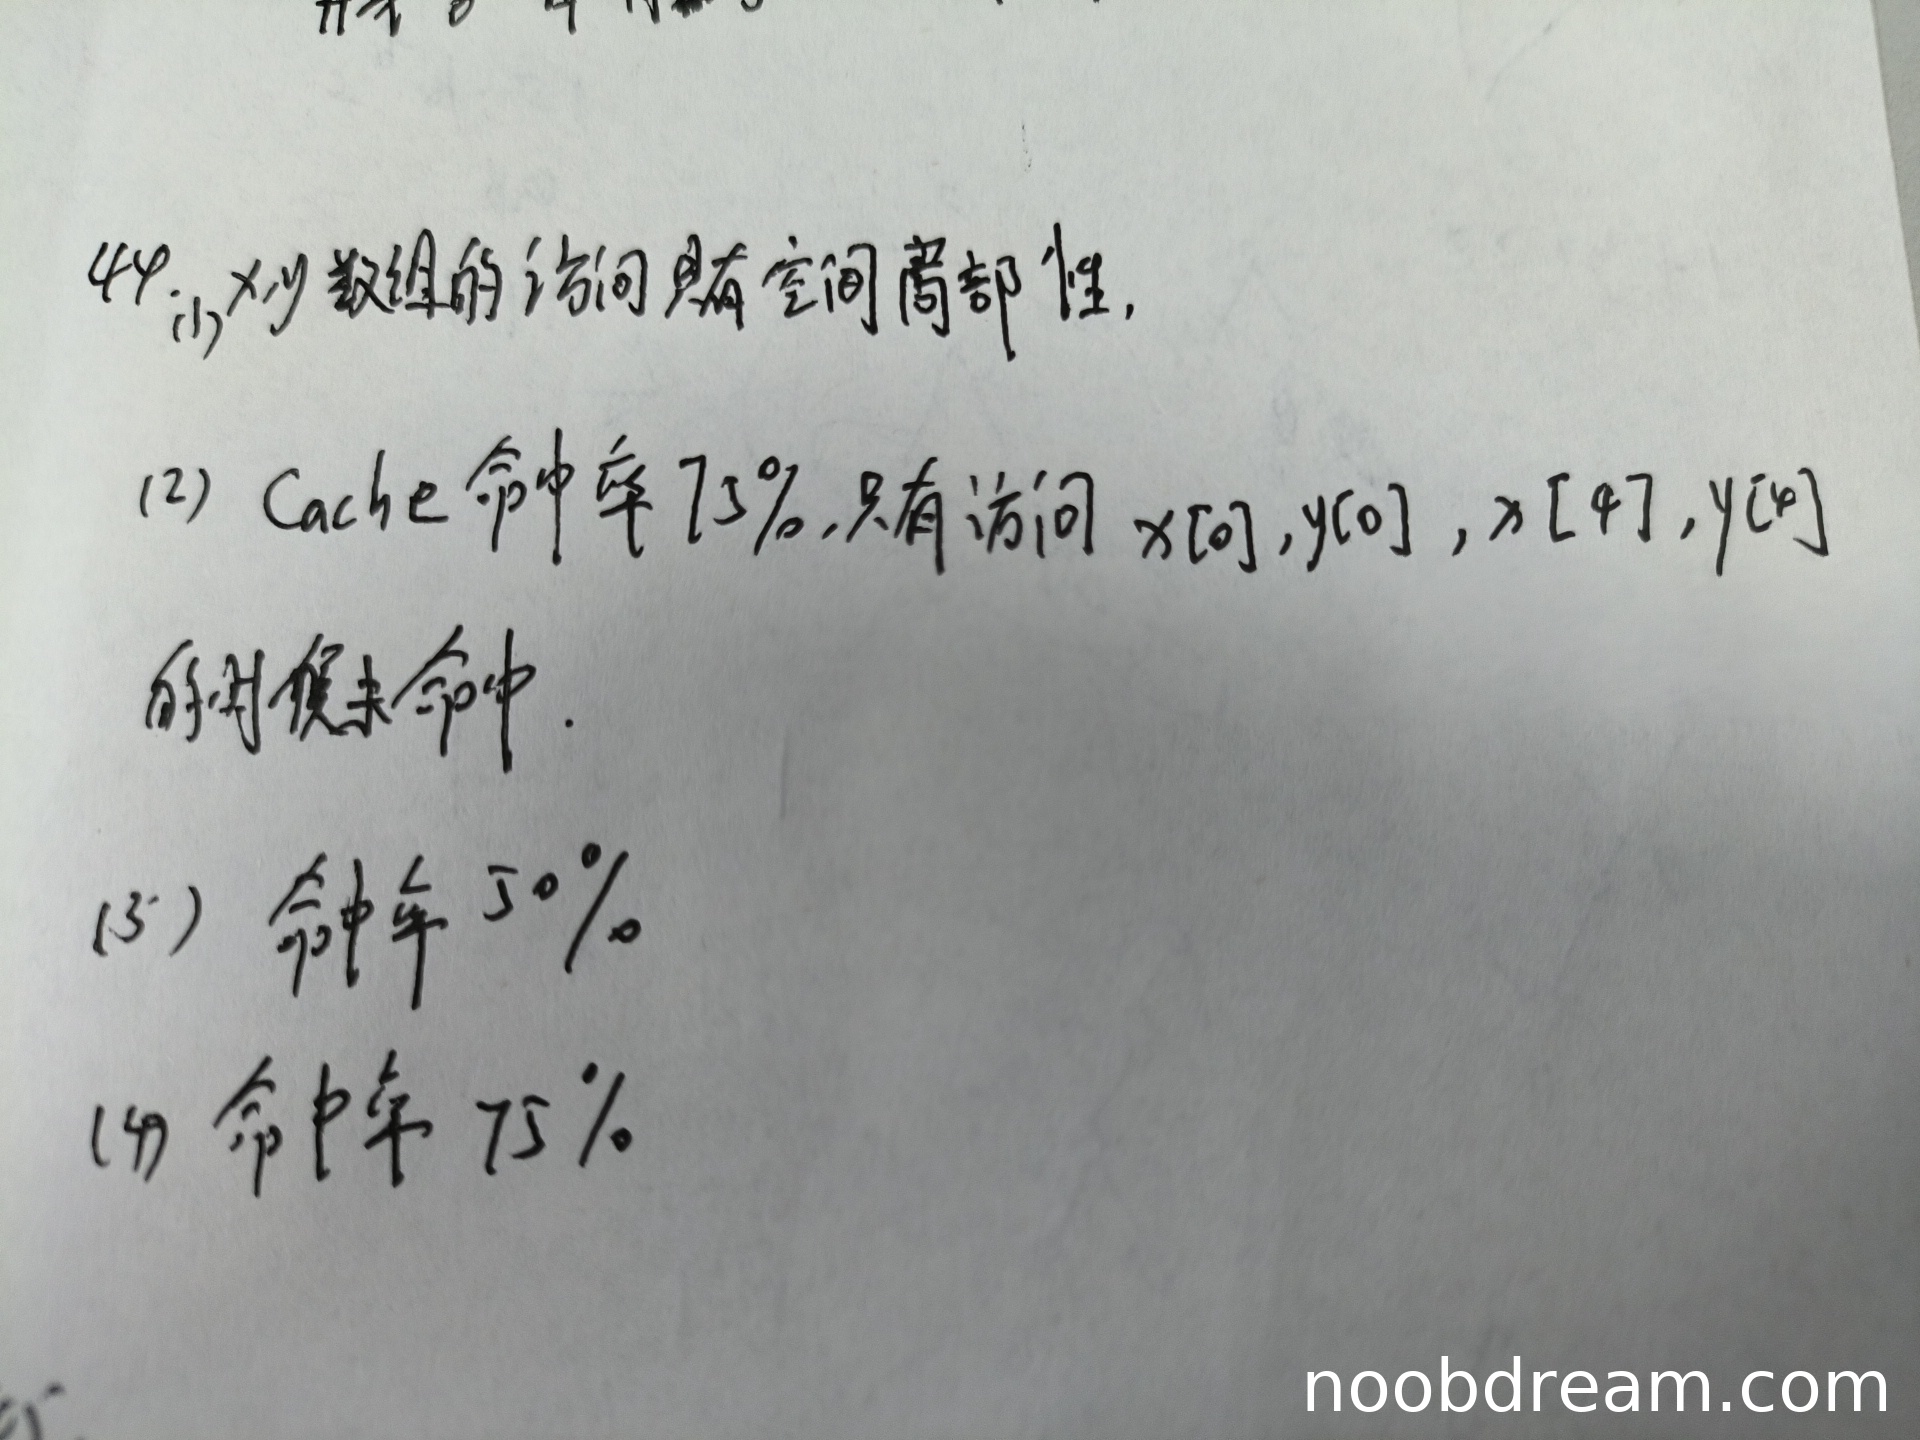 44.(1) x,y数组的访问具有空间局部性,
(2) Cache命中率75%,只有访问 x[0],y[0],x[4],y[4]
的时候未命中.
(3) 命中率50%
(4) 命中率 75%
noobdream.com